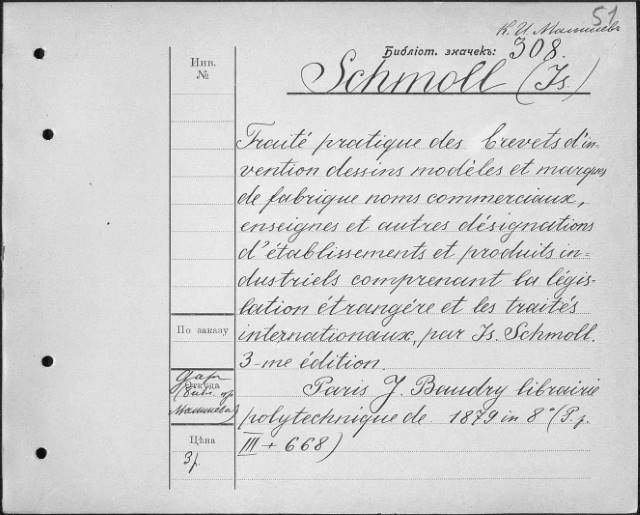 51
К. И. Малышевъ
Библіот. значекъ: 308.
Schmoll (Is.)
Инв.
№
Traité pratique des brevets d'in-
vention dessins modèles et marques
de fabrique noms commerciaux,
enseignes et autres désignations
d'établissements et produits in-
dustriels comprenant la législ-
lation étrangère et les traités
internationaux, par Is. Schmoll.
3-me édition.
Paris J. Baudry librairie
polytechnique de 1879 in 8° (P. p.
III + 668)
По заказу
Откуда
даръ
Малышева
Цѣна
3 р.